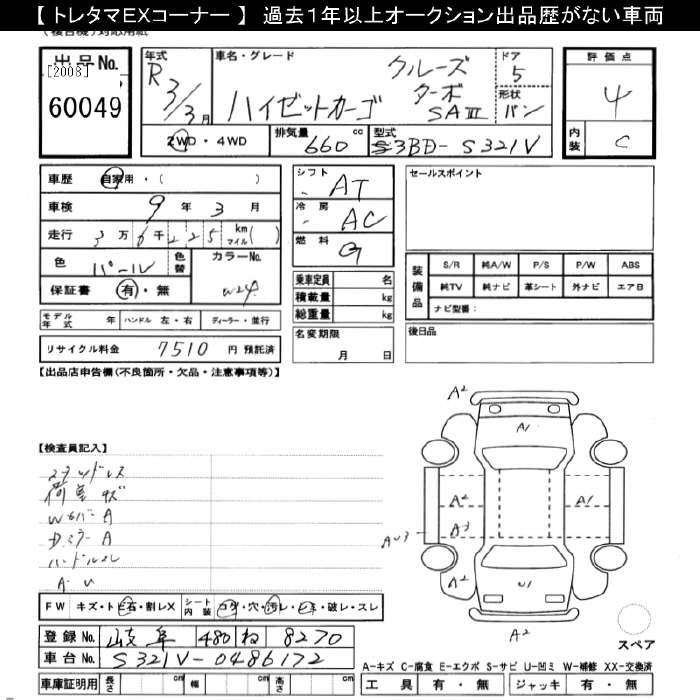 【 トレタマEXコーナー 】 過去1年以上オークション出品歴がない車両
出品No.
[2008]
60049
年式
R 3/3月
車名・グレード
ハイゼットカーゴ
クルーズ
ターボ
SAⅢ
ドア
5
形状
バン
2WD・4WD
排気量
660 cc
型式
3BD-S321V
評価点
4
内装
C
車歴 自家用・( )
車検 9年3月
走行 3万6千225 km マイル( )
色 パール
色替
カラーNo.
W24
保証書 有・無
モデル年式 年
ハンドル 左・右
ディーラー・並行
リサイクル料金 7510 円 預託済
シフト AT
冷房 AC
燃料 G
乗車定員 名
積載量 kg
総重量 kg
名変期限
月 日
セールスポイント
装備品
S/R 純A/W P/S P/W ABS
純TV 純ナビ 革シート 外ナビ エアB
ナビ型番:
後日品
【出品店申告欄(不良箇所・欠品・注意事項等)】
【検査員記入】
荷室キズ
A U
FW キズ・トビ石・割レX
シート内装 コゲ・穴・汚レ・シミ・破レ・スレ
登録No. 岐阜 480 ね 8270
車台No. S321V-0486172
車庫証明用 長さ cm 幅 cm 高さ cm
A2
A1
A2
A3
A1
AU3
A2
U1
A2
スペア
A-キズ C-腐食 E-エクボ S-サビ U-凹ミ W-補修 XX-交換済
工具 有・無 ジャッキ 有・無